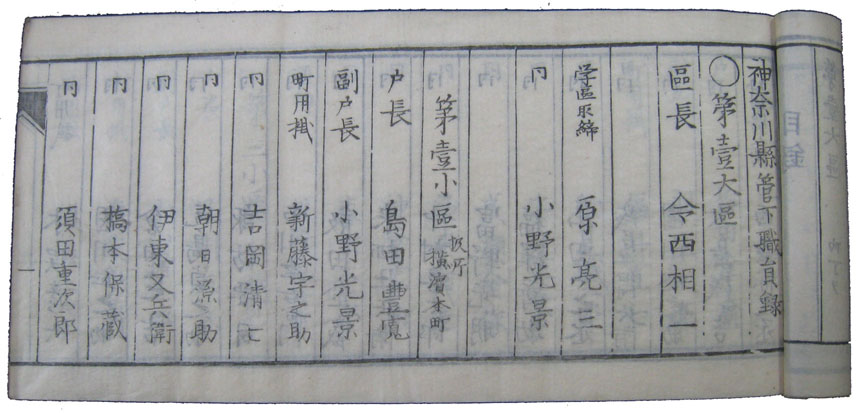 神奈川縣管下職員録
〇第壹大區
區長 今西相一
学區取締 原亮三
同 小野光景
第壹小區 扱所 横濱本町
戸長 島田豊寛
副戸長 小野光景
町用掛 新藤宇之助
同 吉岡清七
同 朝日源助
同 伊東又兵衛
同 橋本保蔵
同 須田重次郎
一
目録